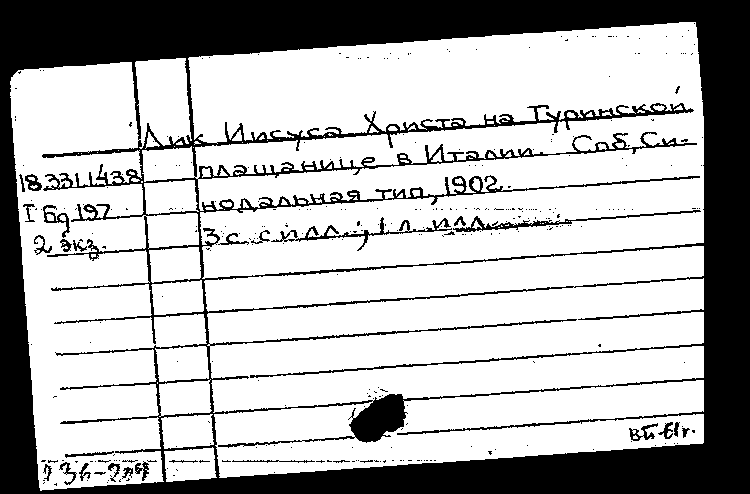 Лик Иисуса Христа на Туринской
плащанице в Италии. Спб, Си-
нодальная тип, 1902.
3 с. с илл.; 1 л. илл.
18.331.1438
2 экз.